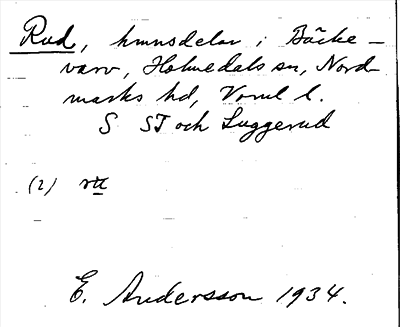 Rud, hmnsdelar i Bäcke-
varv, Holmedals sn, Nord-
marks hd, Vrml l.
S ST och Luggerud
(2) ru
E. Andersson 1934.